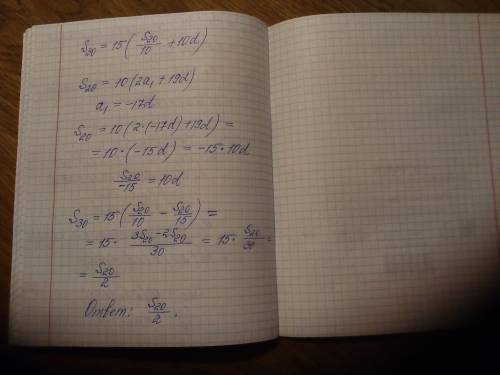 S₃₀ = 15 ( S₂₀/10 + 10d )
S₂₀ = 10 ( 2a₁ + 19d )
a₁ = -17d
S₂₀ = 10 ( 2·(-17d) + 19d ) =
= 10·(-15d) = -15·10d
S₂₀/-15 = 10d
S₃₀ = 15 ( S₂₀/10 - S₂₀/15 ) =
= 15· (3S₂₀ - 2S₂₀)/30 = 15· S₂₀/30 =
= S₂₀/2
Ответ: S₂₀/2.